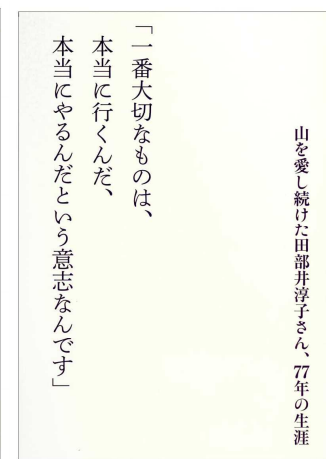 山を愛し続けた田部井淳子さん、77年の生涯
「一番大切なものは、
本当に行くんだ、
本当にやるんだという意志なんです」